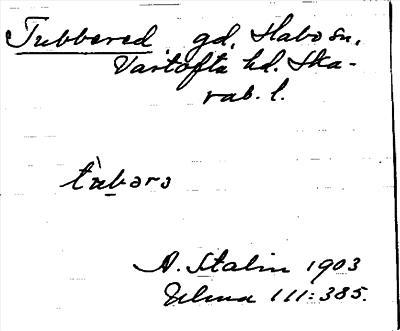 Tubbered gd, Habo sn,
Vartofta hd. Ska-
rab. l.
tùbərə
A. Stalin 1903
Ulma 111:385.